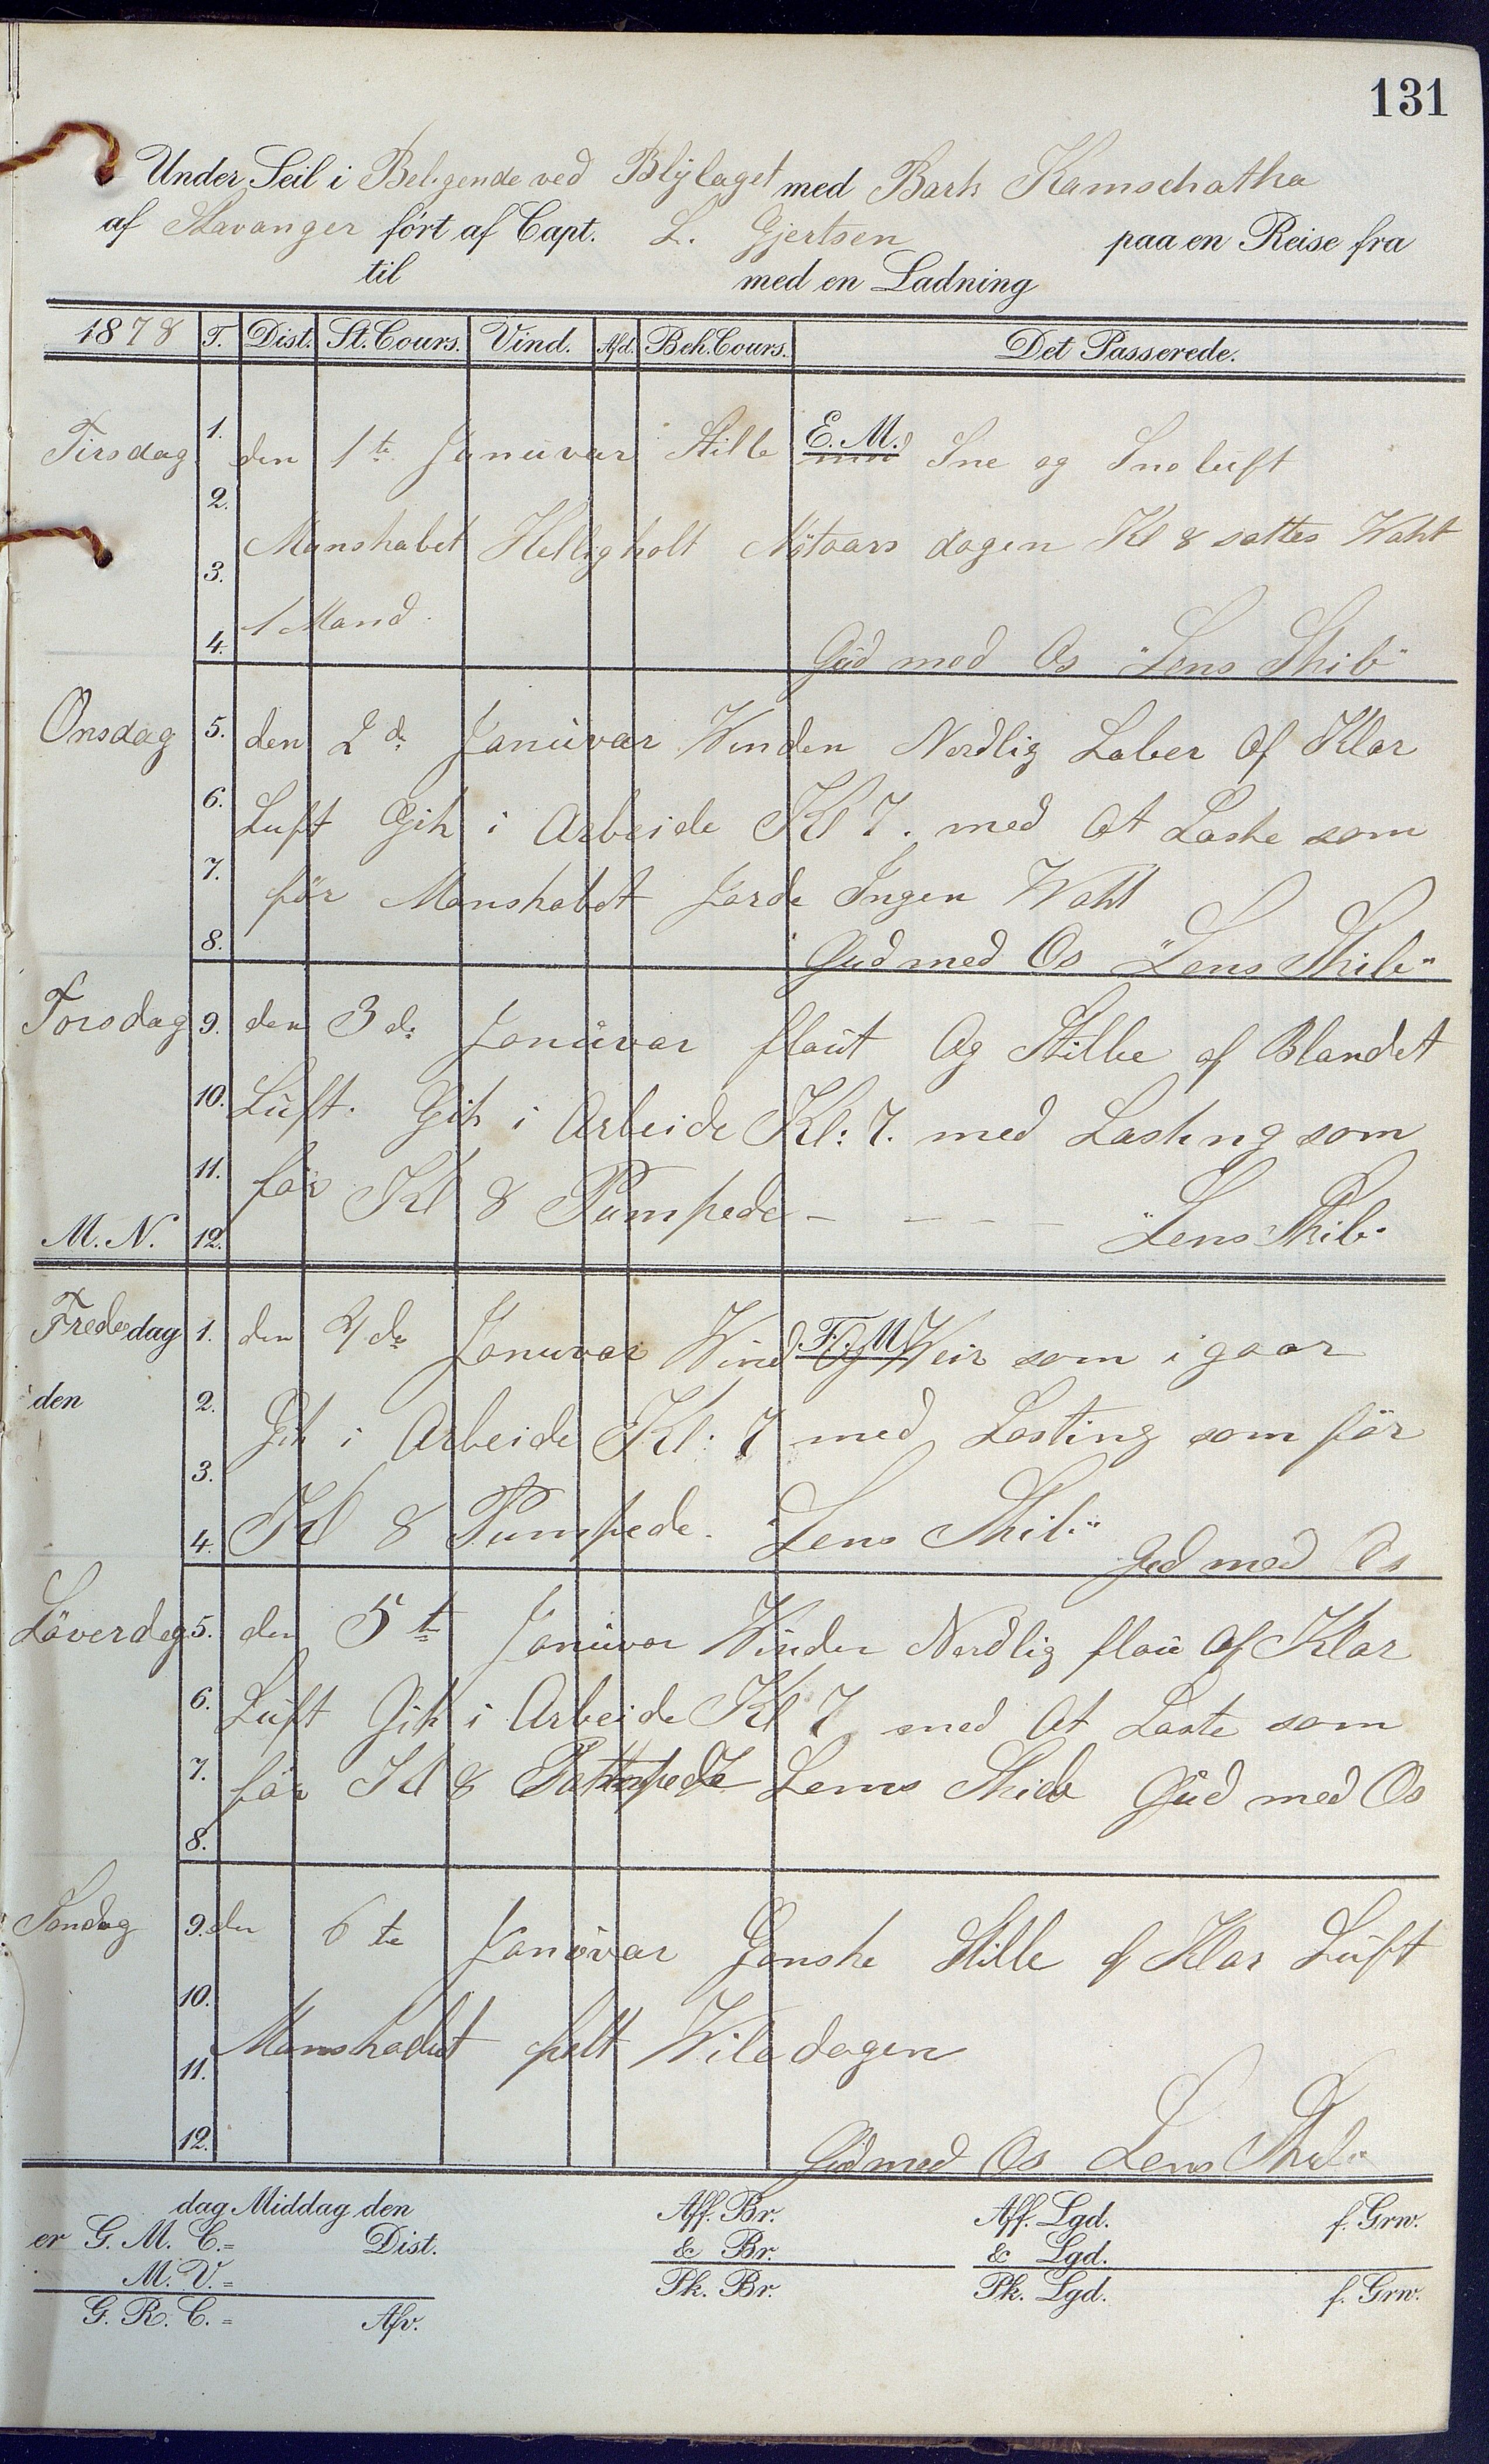 131
Under Seil i Beligende ved Blylaget med Bark Kamschatka
af Stavanger ført af Capt. L. Gjertsen paa en Reise fra
til med en Ladning
1878 T. Dist. St. Cours. Vind. Afd. Beh. Cours. Det Passerede.
E. M.
Tirsdag 1. den 1te Januvar Stille med Sne og Sno luft
2.
Manskabet Helligholt Nÿtaars dagen Kl 8 sattes Waht
3.
1 Mand.
4. Gud med Os "Lens Skib"
Onsdag 5. den 2de Janúvar Winden Nordlig Laber Af Klar
6. Luft Gik i Arbeide Kl 7. med At Laste som
7. för Manskabet Jorde Ingen Waht
8. Gud med Os "Lens Skib"
Torsdag 9. den 3de Janúvar flaut Og Stille af Blandet
10. Lúft. Gik i Arbeide Kl: 7. med Lasting som
11. för Kl 8 Pumpede - - - - "Lens Skib"
M. N. 12.
F. M.
Frededag 1. den 4de Januvar Wind Og Weir som i gaar
den 2. Gik i Arbeide Kl: 7 med Lasting som för
3.
4. Kl 8 Pumpede. "Lens Skib" Gud med Os
Löverdag 5. den 5te Janúvar Winden Nordlig flaú Af Klar
6. Lúft Gik i Arbeide Kl 7 med At Laste som
7. för Kl 8 Pumpede Lens Skib Gúd med Os
8.
Sondag 9. den 6te Janúvar Ganske Stille af Klar Lúft
10.
Manskabet Wiledagen
11.
12. Gud med Os Lens Skib"
dag Middag den Aff. Br. Aff. Lgd. f. Grw.
er G. M. C.= Dist. & Br. & Lgd.
M. V.= Pk. Br. Pk. Lgd. f. Grw.
G. R. C.= Afv.